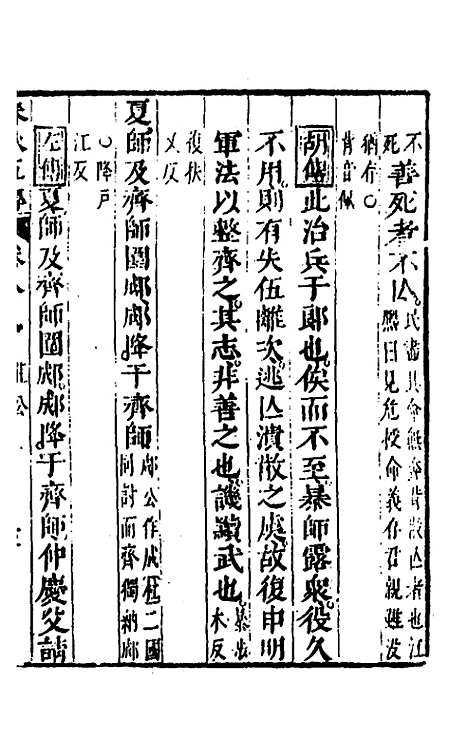 不死善死者不亾民盡其命無奔背散亾者也江熙曰見危授命義存君親雖沒
猶存○背音佩
胡傳此治兵于郎也俟而不至暴師露衆役久
不用則有失伍離次逃亾潰散之虞故復申明
軍法以整齊之其志非善之也譏黷武也暴步木反
復扶又反
夏師及齊師圍郕郕降于齊師郕公作成杜二國同討而齊獨納郕
○降戶江反
左傳夏師及齊師圍郕郕降于齊師仲慶父請